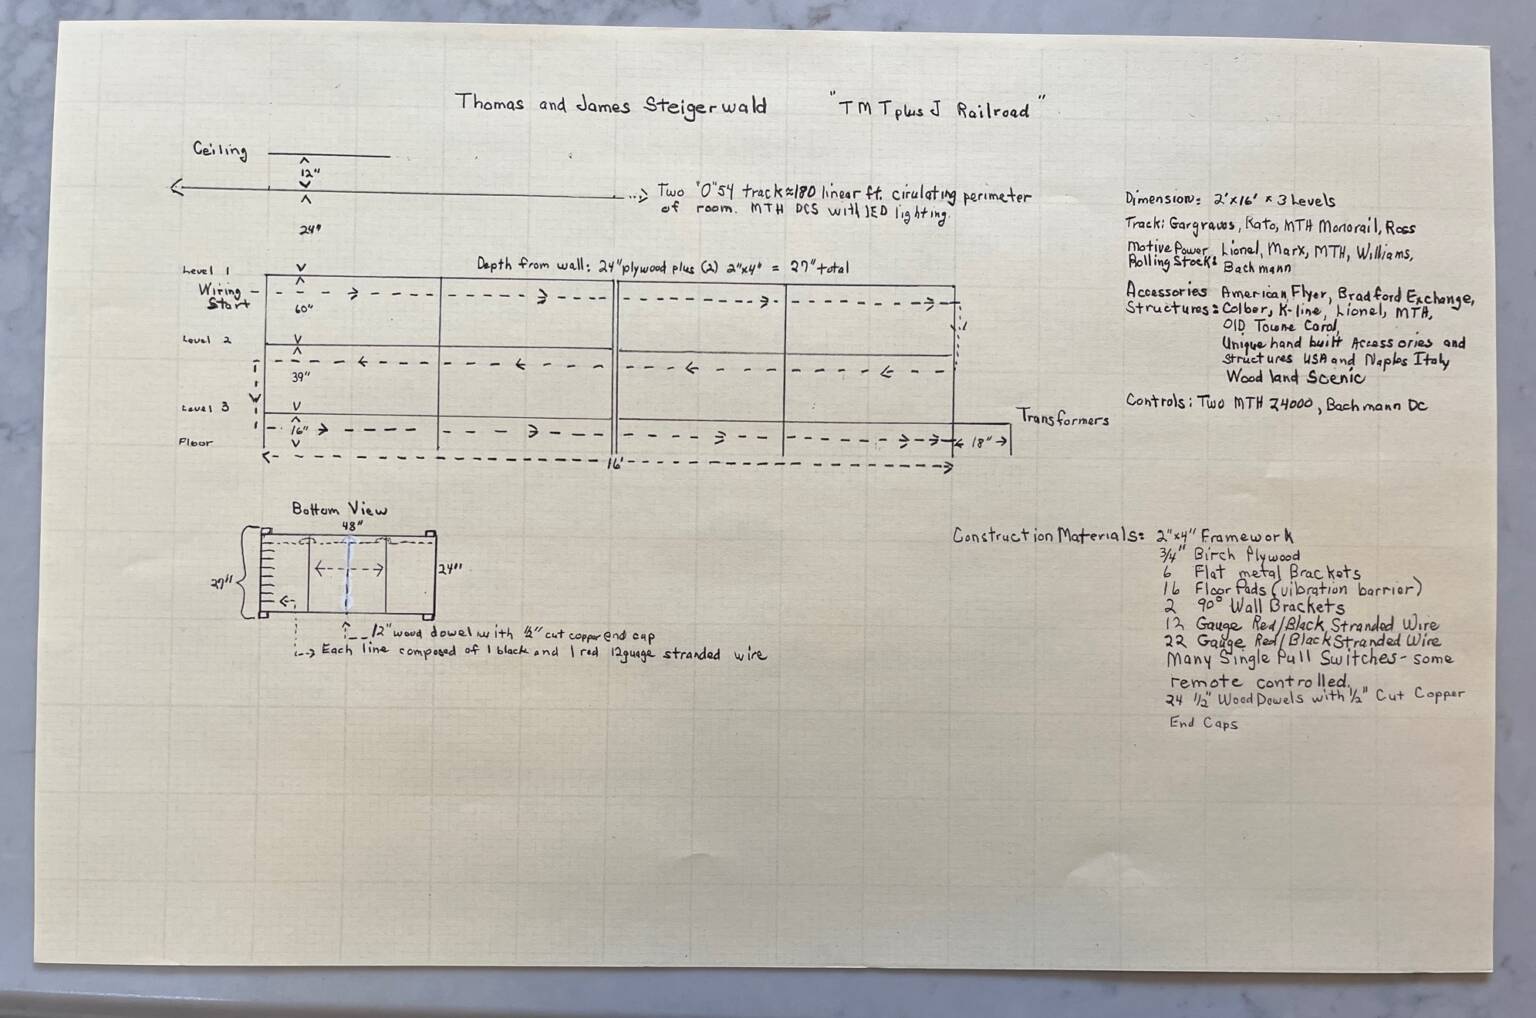 Thomas and James Steigerwald "TMTplusJ Railroad"
Ceiling
12"
Two "O"54 track≈180 linear ft. cirulating perimeter
of room. MTH DCS with LED lighting.
24"
Level 1
Depth from wall: 24"plywood plus (2) 2"x4" = 27"total
Wiring
Start
60"
Level 2
39"
Level 3
16"
Floor
16'
Transformers
18"
Dimension: 2'x16' x 3 Levels
Track: Gargraves, Kato, MTH Monorail, Ross
Motive Power Lionel, Marx, MTH, Williams,
Rolling Stock: Bachmann
Accessories American Flyer, Bradford Exchange,
Structures: Colber, K-line, Lionel, MTH,
OlD Towne Carol,
Unique hand built Accessories and
structures USA and Naples Italy
Woodland Scenic
Controls: Two MTH Z4000, Bachmann DC
Bottom View
48"
27"
24"
12" wood dowel with ½" cut copper end cap
Each line composed of 1 black and 1 red 12guage stranded wire
Construction Materials: 2"x4" Framework
3/4" Birch Plywood
6 Flat metal Brackets
16 Floor Pads (vibration barrier)
2 90° Wall Brackets
12 Gauge Red/Black Stranded Wire
22 Gauge Red/Black Stranded Wire
Many Single Pull Switches - some
remote controlled.
24 ½" Wood Dowels with ½" Cut Copper
End Caps